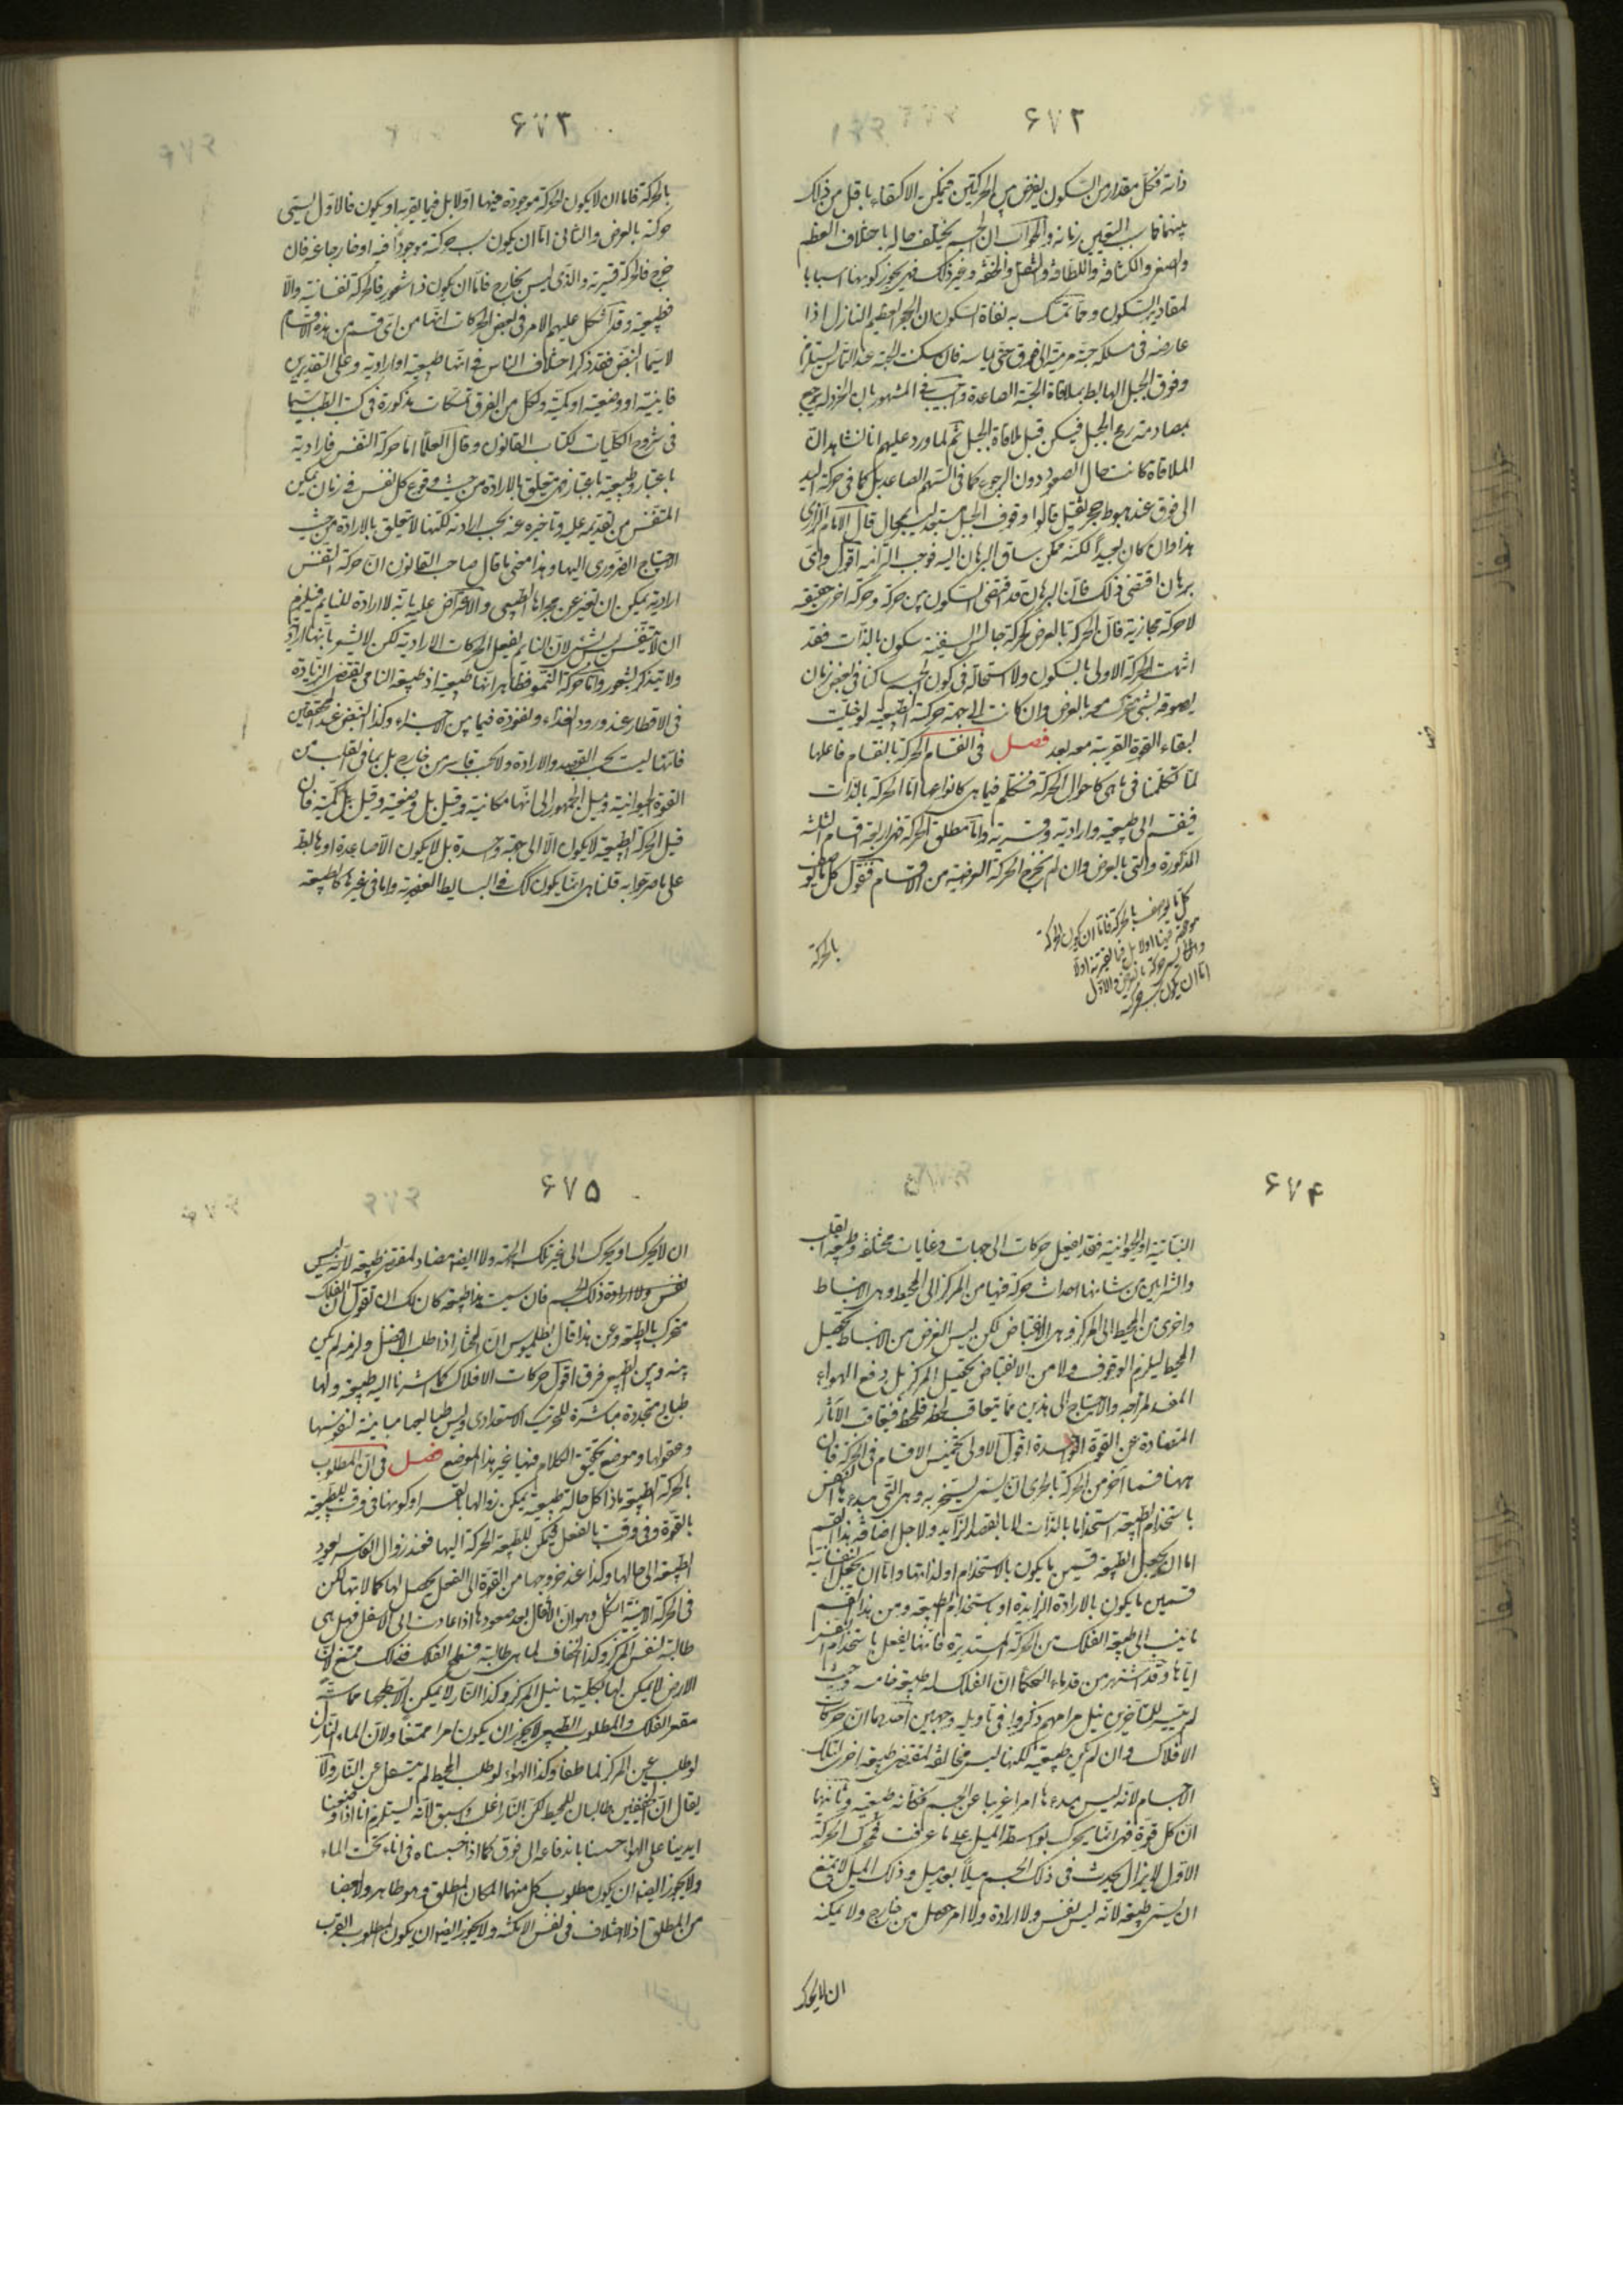 ۶۷۲
ذاته فكل مقدار من السكون يفرض بين الحركتين فيمكن الاكتفاء باقل من ذلك
بينهما فاسب التعيين زمانه والجواب ان الجسم يختلف حاله باختلاف العظم
والصغر والكثافة واللطافة والثقل والخفة وغير ذلك فيجوز كونها اسبابا
لمقادير السكون ومما تمسك به نفاة السكون ان الحجر العظيم النازل اذا
عارضه فى مسلكه حبة مرمية الى فوق حتى يماسه فان سكنت الحبة عند التماس يستلزم
وقوف الجبل الهابط بملاقاة الحبة الصاعدة واجيب فى المشهور بان الخردلة يرجع
بمصادمة ريح الجبل فيسكن قبل ملاقاة الجبل ثم لما ورد عليهم انا نشاهد ان
الملاقاة كانت حال الصعود دون الرجوع كما فى السهم الصاعد بل كما فى حركة اليد
الى فوق عند هبوط حجر ثقيل قالوا وقوف الجبل مستبعد ليس بمحال قال الامام الرازى
هذا وان كان بعيداً لكنه ممكن ساق البرهان اليه فوجب التزامه اقول واى
برهان اقتضى ذلك فان البرهان قد اقتضى السكون بين حركة وحركة اخرى حقيقة
لا حركة مجازية فان الحركة بالعرض كحركة جالس السفينة سكون بالذات فقد
انتهت الحركة الاولى بالسكون ولا استحالة فى كون الجسم ساكنا فى بعض زمان
لصوقه بشئ متحرك معه بالعرض وان كانت الى جهة حركته الطبيعية لو خليت
لبقاء القوة القريبة معه بعد فصل فى انقسام الحركة بانقسام فاعلها
لما تكلمنا فى ما هى كاحوال الحركة فنتكلم فيما هى كانواعها اما الحركة بالذات
فينقسم الى طبيعية وارادية وقسرية واما مطلق الحركة فهى اربعة اقسام الثلثة
المذكورة والتى بالعرض وان لم نخرج الحركة العرضية من الاقسام فنقول كل ما يوصف
كل ما يوصف بالحركة فاما ان يكون الحركة
موجودة فيها اولا بل فيما يقترنه اولا
والثانى يسمى حركة بالعرض والاول
اما ان يكون سبب حركته
بالحركة
۶۷۳
بالحركة فاما ان لا يكون الحركة موجودة فيها اولا بل فيما يقربه او يكون فالاول يسمى
حركة بالعرض والثانى اما ان يكون سبب حركته موجوداً فيه او خارجا عنه فان
خرج فالحركة قسرية والذى ليس بخارج فاما ان يكون ذا شعور فالحركة نفسانية والا
فطبيعية وقد اشكل عليهم الامر فى بعض الحركات انها من اى قسم من هذه الاقسام
لا سيما النبض فقد ذكر اختلاف الناس فى انها طبيعية او ارادية وعلى التقديرين
فاينية او وضعية او كمية ولكل من الفرق تمسكات مذكورة فى كتب الطب سيما
فى شروح الكليات لكتاب القانون وقال العلامة اما حركة النفس فارادية
باعتبار وطبيعية باعتبار فهى تتعلق بالارادة من حيث وقوع كل نفس فى زمان يمكن
المتنفس من تقديمه عليه وتاخيره عنه بحسب ارادته لكنها لا تتعلق بالارادة من حيث
الاحتياج الضرورى اليها وهذا معنى ما قال صاحب القانون ان حركة التنفس
ارادية يمكن ان تغير عن مجراها الطبيعى والاعتراض عليه بانه لا ارادة للنايم فيلزم
ان لا يتنفس ليس بشئ لان النايم يفعل الحركات الارادية لكن لا يشعر بانها ارادية
ولا يتذكر شعوره واما حركة النمو فظاهر انها طبيعية اذ طبيعة النامى يقتضى الزيادة
فى الاقطار عند ورود الغذاء ونفوذه فيما بين الاجزاء وكذا النبض عند المحققين
فانها ليست بحسب القصد والارادة ولا بحسب قاسر من خارج بل بما فى القلب من
القوة الحيوانية وميل الجمهور الى انها مكانية وقيل بل وضعية وقيل بل كمية فان
قيل الحركة الطبيعية لا يكون الا الى جهة واحدة بل لا يكون الا صاعدة او هابطة
على ما صرحوا به قلنا هى انما يكون كك فى البسايط العنصرية واما فى غيرها كالطبيعة
۶۷۴
النباتية او الحيوانية فقد يفعل حركات الى جهات وغايات مختلفة وطبيعة القلب
والشرايين من شانها احداث حركة فيها من المركز الى المحيط وهى الانبساط
واخرى من المحيط الى المركز وهى الانقباض لكن ليس الغرض من الانبساط تحصيل
المحيط ليلزم الوقوف ولا من الانقباض تحصيل المركز بل دفع الهواء
المفسد لمزاجه والاحتياج الى هذين مما يتعاقب لحظة فلحظة فيتعاقب الآثار
المتضادة عن القوة الواحدة اقول الاولى تخميس الاقسام فى الحركة فان
ههنا قسما آخر من الحركة بالحرى ان يسمى تسخيرية وهى التى مبدءها النفس
باستخدام الطبيعة استخداما بالذات لا بالقصد الزايد ولاجل اضافة هذا القسم
اما ان يجعل الطبيعة قسمين ما يكون بالاستخدام او لذاتها واما ان يجعل النفسانية
قسمين ما يكون بالارادة الزايدة او باستخدام الطبيعة ومن هذا القسم
ما ينسب الى طبيعة الفلك من الحركة المستديرة فانها يفعل باستخدام النفس
اياها وقد اشتهر من قدماء الحكماء ان الفلك له طبيعة خامسة وحيث
لم يتيسر للمتاخرين نيل مرامهم ذكروا فى تاويله وجهين احدهما ان حركات
الافلاك وان لم تكن طبيعية لكنها ليس مخالفة لمقتضى طبيعة اخرى لتلك
الاجسام لانه ليس مبدءها امرا غريبا عن الجسم فكانه طبيعة وثانيهما
ان كل قوة فهى انما يحرك بواسطة الميل على ما عرفت فمحرك الحركة
الاول لا يزال يحدث فى ذلك الجسم ميلاً بعد ميل وذلك الميل لا يمتنع
ان يسمى طبيعة لانه ليس بنفس ولا ارادة ولا امر حصل من خارج ولا يمكنه
ان لا يحرك
۶۷۵
ان لا يحرك او يحرك الى غير تلك الجهة ولا ايضا مضاد لمقتضى طبيعة لانه ليس
بنفس ولا ارادة ذلك الجسم فان سميت هذا طبيعة كان لك ان تقول ان الفلك
متحرك بالطبيعة وعن هذا قال بطلميوس ان المختار اذا طلب الافضل ولزمه لم يكن
بينه وبين الطبيعى فرق اقول حركات الافلاك كما اشرنا اليه طبيعية ولها
طبايع متجددة مباشرة للتحريك الاستعدادى وليس طبايعها مباينة لنفوسها
وعقولها وموضع تحقيق الكلام فيها غير هذا الموضع فصل فى ان المطلوب
بالحركة الطبيعية ماذا كل حالة طبيعية يمكن زوالها بالقسر او كونها فى وقت للطبيعة
بالقوة وفى وقت بالفعل فيمكن للطبيعة الحركة اليها فعند زوال القاسر يعود
الطبيعة الى حالها وكذا عند خروجها من القوة الى الفعل يحصل لها كمالاتها لكن
فى الحركة الاينية شك وهو ان الاثقال بعد صعودها اذا عادت الى الاسفل فهل هى
طالبة لنفس المركز وكذا الخفاف لما هى طالبة فسطح الفلك فذلك ممتنع لان
الارض لا يمكن لها بكليتها نيل المركز وكذا النار لا يمكن الا سطحها مماسة
مقعر الفلك والمطلوب الطبيعى لا يجوز ان يكون امرا ممتنعا ولان الماء النازل
لو طلب عين المركز لما طفا وكذا الهواء لو طلب المحيط لم يتسفل عن النار ولا
يقال ان الخفيفين طالبان للمحيط لكن النار اغلب واسبق لانه يستلزم انا اذا وضعنا
ايدينا على الهواء احسسنا باندفاعه الى فوق كما اذا حبسناه فى اناء تحت الماء
ولا يجوز ايضا ان يكون مطلوب كل منهما المكان المطلق فهو ظاهر ولا بعضا
من المطلق اذ لا اختلاف فى نفس الامكنة ولا يجوز ايضا ان يكون المطلوب القرب